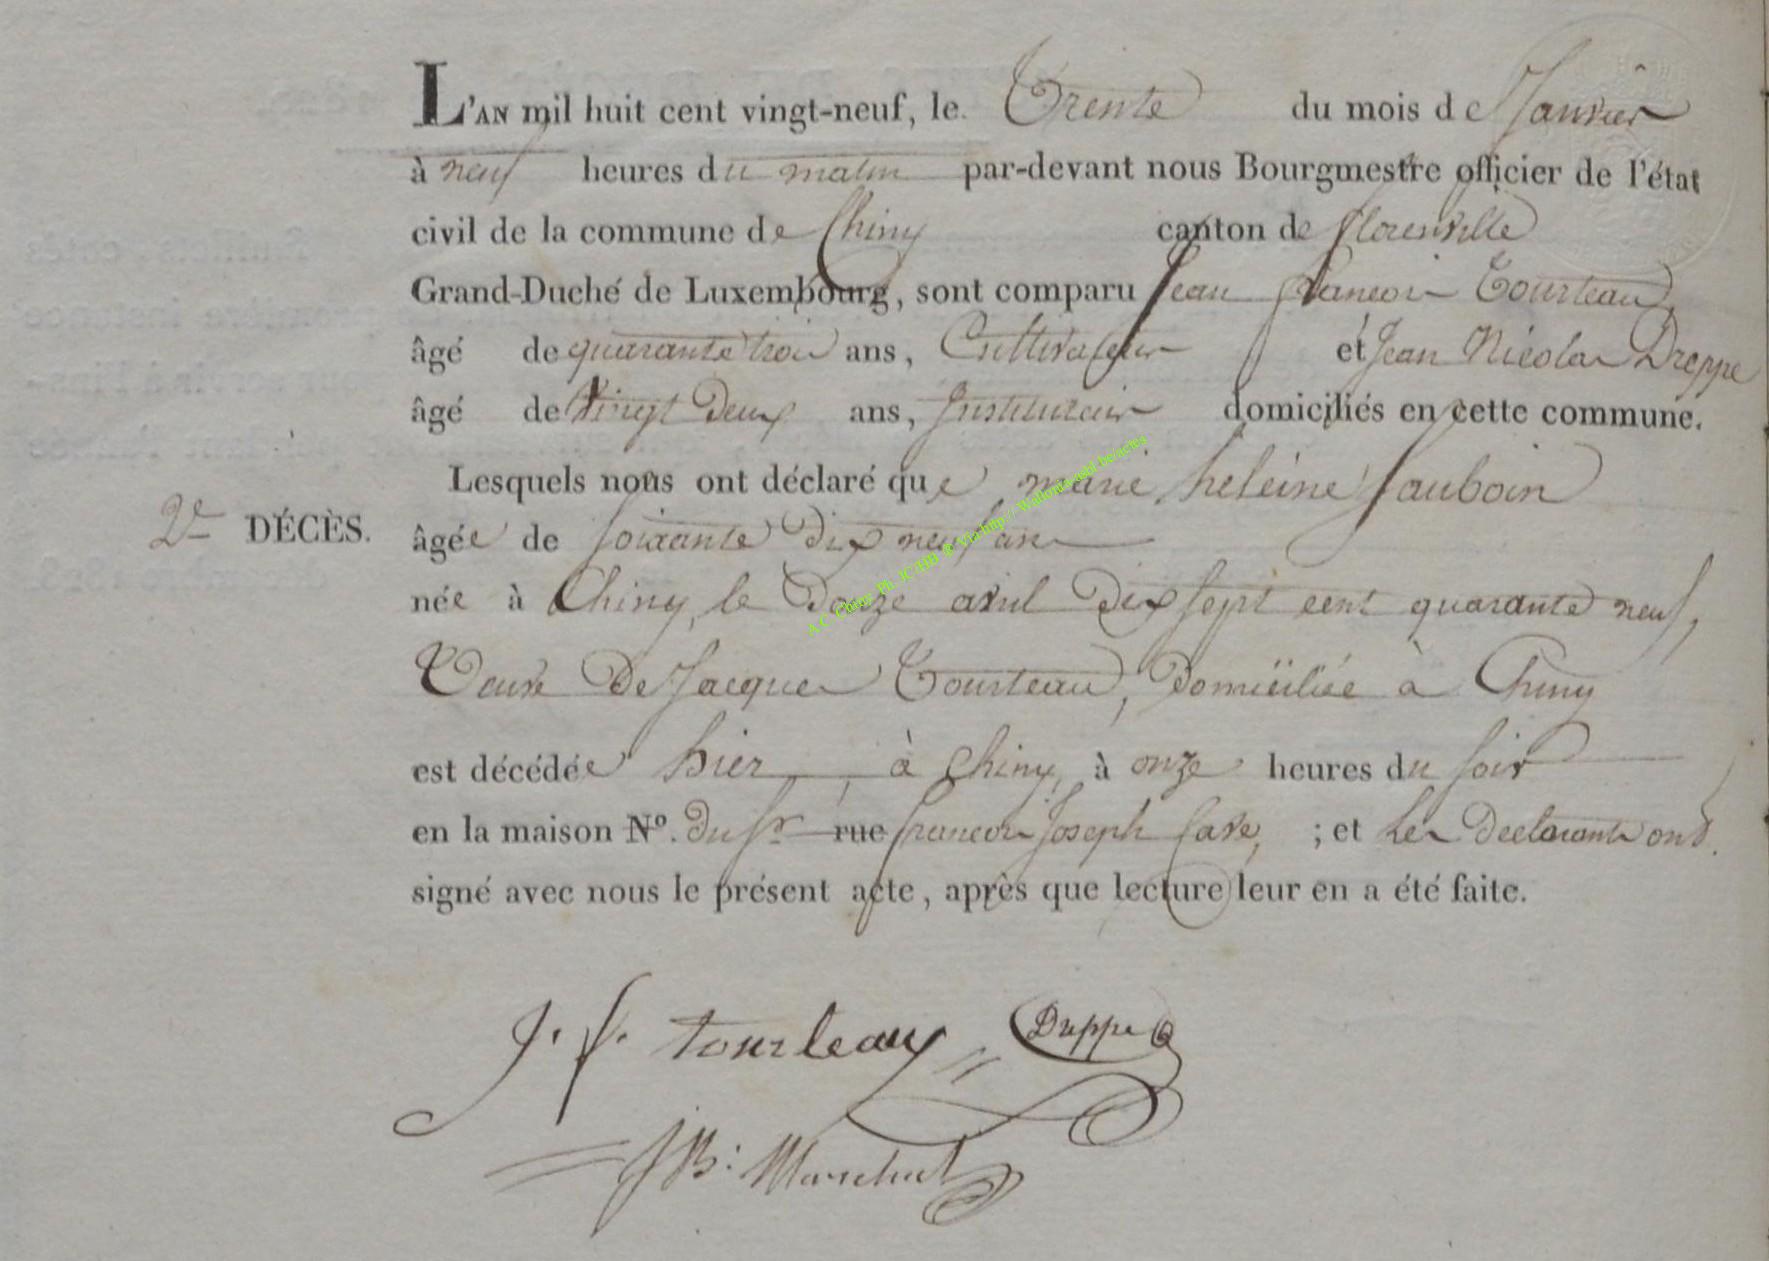 L'AN mil huit cent vingt-neuf, le Trente du mois de Janvier
à neuf heures du matin par-devant nous Bourgmestre officier de l'état
civil de la commune de Chiny canton de florenville
Grand-Duché de Luxembourg, sont comparu Jean françois Tourteau,
âgé de quarante trois ans, Cultivateur et Jean Nicolas Dreppe
âgé de vingt deux ans, Instituteur domiciliés en cette commune.
Lesquels nous ont déclaré que marie heleine Jauboin
2e DÉCÈS.
âgée de soixante dix neuf ans
née à Chiny, le douze avril dix sept cent quarante neuf,
Veuve De Jacques Tourteau, domiciliée à Chiny
est décédée hier, à Chiny, à onze heures du soir
en la maison N°. du Sr rue françois Joseph ; et les declarants ont
signé avec nous le présent acte, après que lecture leur en a été faite.
J. f. tourteaux Dreppe
JB: Marchal
A.C. Chiny Ph. JC/HB @ Via http:// Wallonia-asbl.be/actes